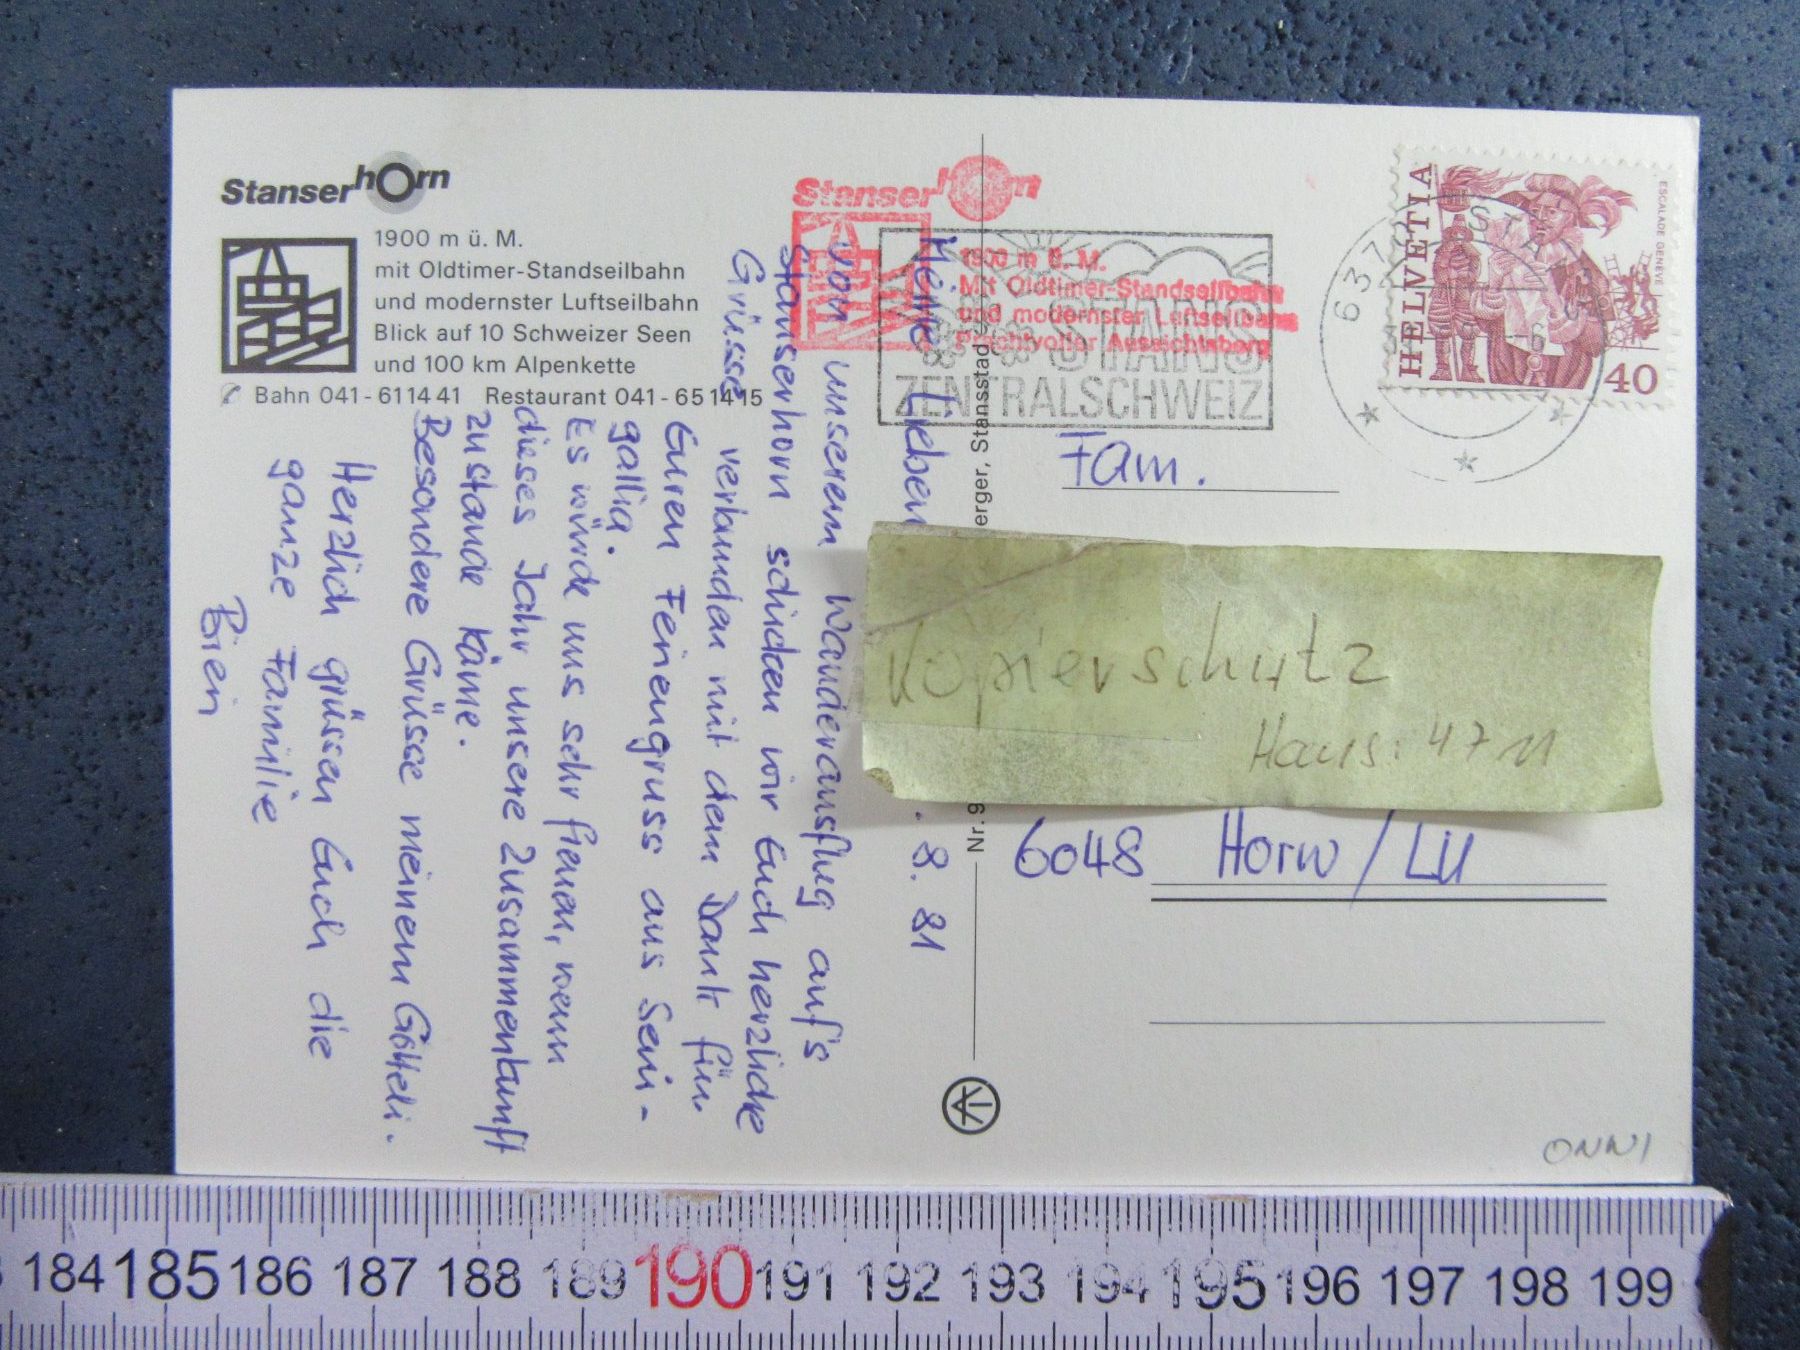 Stanserhorn
1900 m ü. M.
mit Oldtimer-Standseilbahn
und modernster Luftseilbahn
Blick auf 10 Schweizer Seen
und 100 km Alpenkette
Bahn 041-61 14 41 Restaurant 041-65 14 15
Stanserhorn
1900 m ü. M.
Mit Oldtimer-Standseilbahn
und modernster Luftseilbahn
Prachtvoller Aussichtsberg
STANS
ZENTRALSCHWEIZ
HELVETIA
ESCALADE GENÈVE
40
637
STA
Meine Lieben
. 8. 81
Von unserem Wanderausflug auf's
Stanserhorn schicken wir Euch herzliche
Grüsse verbunden mit dem Dank für
Euren Feriengruss aus Seni-
gallia.
Es würde uns sehr freuen, wenn
dieses Jahr unsere Zusammenkunft
zustande käme.
Besondere Grüsse meinem Götteli.
Herzlich grüssen Euch die
ganze Familie
erger, Stansstad
Nr. 9
Fam.
Kopierschutz
Haus: 47 11
6048 Horw / LU
ONNI
184 185 186 187 188 189 190 191 192 193 194 195 196 197 198 199